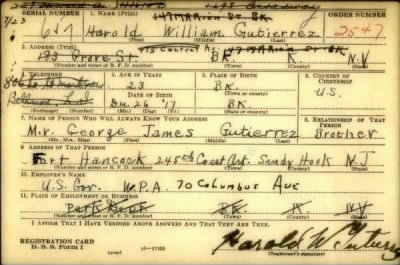 SERIAL NUMBER 1. NAME (Print) 147 MARION ST BK.
617 Harold William Gutierrez 2547
(First) (Middle) (Last)
2. ADDRESS (Print)
193 Grove St. BK. K N.Y
(Number and street or R. F. D. number) (Town) (County) (State)
3. TELEPHONE 4. AGE IN YEARS 5. PLACE OF BIRTH 6. COUNTRY OF CITIZENSHIP
23 BK.
DATE OF BIRTH U.S.
Dec 26 '17 BK.
(Exchange) (Number) (Mo.) (Day) (Yr.) (State or country)
7. NAME OF PERSON WHO WILL ALWAYS KNOW YOUR ADDRESS 8. RELATIONSHIP OF THAT PERSON
Mr. George James Gutierrez Brother
(Mr., Mrs., Miss) (First) (Middle) (Last)
9. ADDRESS OF THAT PERSON
Fort Hancock 245th Coast Art. Sandy Hook N.J
(Number and street or R. F. D. number) (Town) (County) (State)
10. EMPLOYER'S NAME
U.S. Gov. W.P.A. 70 Columbus Ave
11. PLACE OF EMPLOYMENT OR BUSINESS
Park Dept BK. K NY
(Number and street or R. F. D. number) (Town) (County) (State)
I AFFIRM THAT I HAVE VERIFIED ABOVE ANSWERS AND THAT THEY ARE TRUE.
REGISTRATION CARD
D. S. S. Form 1 (over) 16—17105
Harold W Gutierrez
(Registrant's signature)